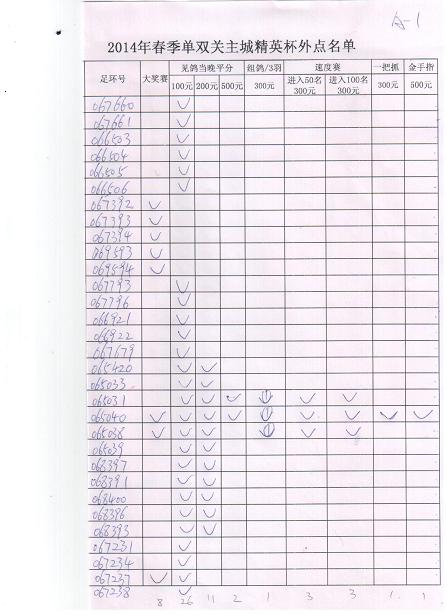 A-1
2014年春季单双关主城精英杯外点名单
足环号 大奖赛 见鸽当晚平分 组鸽/3羽 速度赛 一把抓 金手指
100元 200元 500元 300元 进入50名 300元 进入100名 300元 300元 500元
067660 ✓
067661 ✓
066503 ✓
066504 ✓
066505 ✓
066506 ✓
067392 ✓
067393 ✓
067394 ✓
069593 ✓
069594 ✓
067793 ✓
067796 ✓
066921 ✓
066922 ✓
067679 ✓
065420 ✓ ✓
065033 ✓ ✓
065031 ✓ ✓ ✓ ① ✓ ✓
065040 ✓ ✓ ✓ ✓ ① ✓ ✓ ✓ ✓
065038 ✓ ✓ ✓ ① ✓ ✓
065039 ✓ ✓
068397 ✓ ✓
068391 ✓ ✓
068400 ✓ ✓
068396 ✓ ✓
068393 ✓ ✓
067231 ✓
067234 ✓
067237 ✓ ✓
067238 ✓
8 26 11 2 1 3 3 1 1